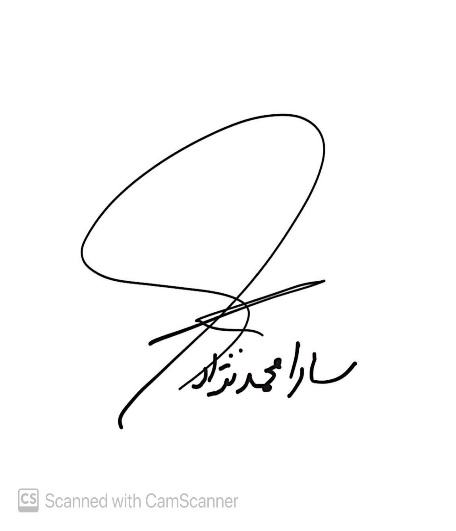 سارا محمدنژاد
CS Scanned with CamScanner